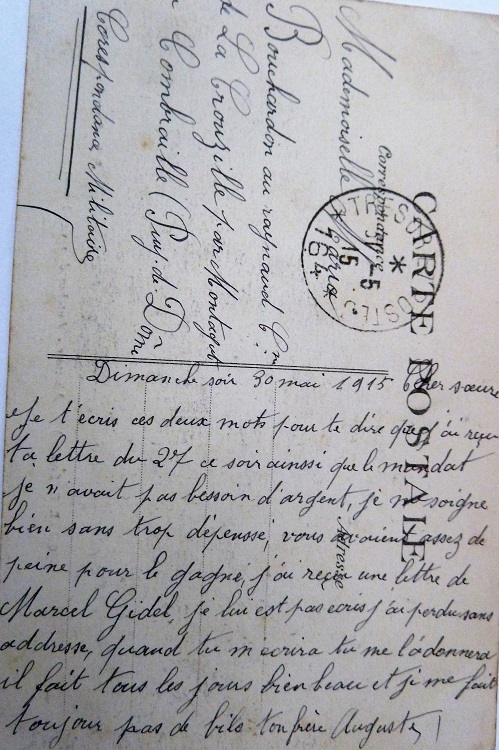 CARTE POSTALE
Correspondance
Adresse
TRESOR
POSTES
* 31-5 *
15
64
Mademoiselle Maria
Bouchardon au raynaud Cne
de La Crouzille par Montaigut
Combraille (Puy-de-Dôme
Correspondance Militaire
Dimanche soir 30 mai 1915 Cher sœure
Je t'ecris ces deux mots pour te dire que j'ai reçu
ta lettre du 27 ce soir ainsi que le mandat
je n'avait pas besoin d'argent, je me soigne
bien sans trop dépensse, vous avaient assez de
peine pour le gagné, j'ai reçu une lettre de
Marcel Gidel, je lui est pas ecris j'ai perdu sans
addresse, quand tu m'ecrira tu me l'adonnera
il fait tous les jours bien beau et je me fait
toujour pas de bile ton frère Auguste